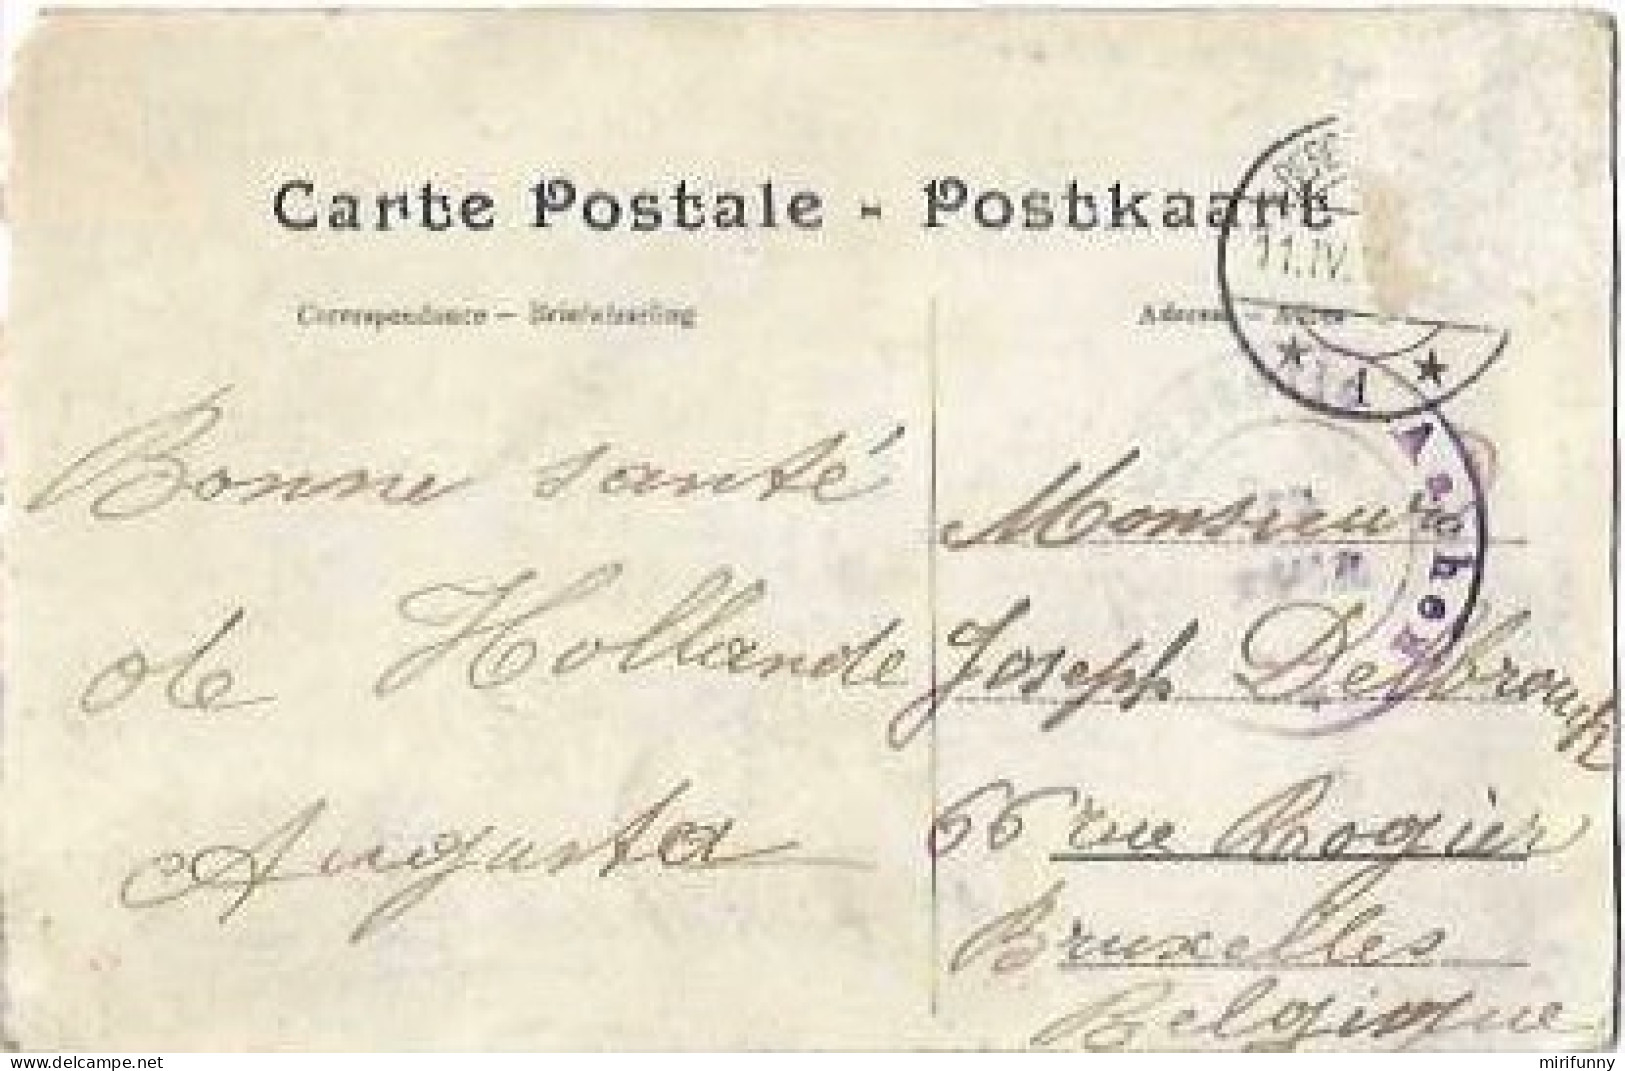 Carte Postale - Postkaart
Correspondance — Briefwisseling
Adresse — Adres
11.IV.
Aachen
Bonne santé
de Hollande
Augusta
Monsieur
Joseph
66 rue Rogier
Bruxelles
Belgique
mirifunny